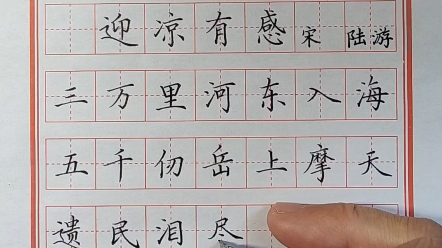 迎凉有感 宋 陆游
三万里河东入海
五千仞岳上摩天
遗民泪尽